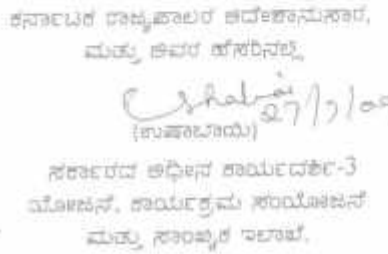 ಕರ್ನಾಟಕ ರಾಜ್ಯಪಾಲರ ಆದೇಶಾನುಸಾರ,
ಮತ್ತು ಅವರ ಹೆಸರಿನಲ್ಲಿ
27/7/
(ಉಷಾಬಾಯಿ)
ಸರ್ಕಾರದ ಅಧೀನ ಕಾರ್ಯದರ್ಶಿ-3
ಯೋಜನೆ, ಕಾರ್ಯಕ್ರಮ ಸಂಯೋಜನೆ
ಮತ್ತು ಸಾಂಖ್ಯಿಕ ಇಲಾಖೆ.